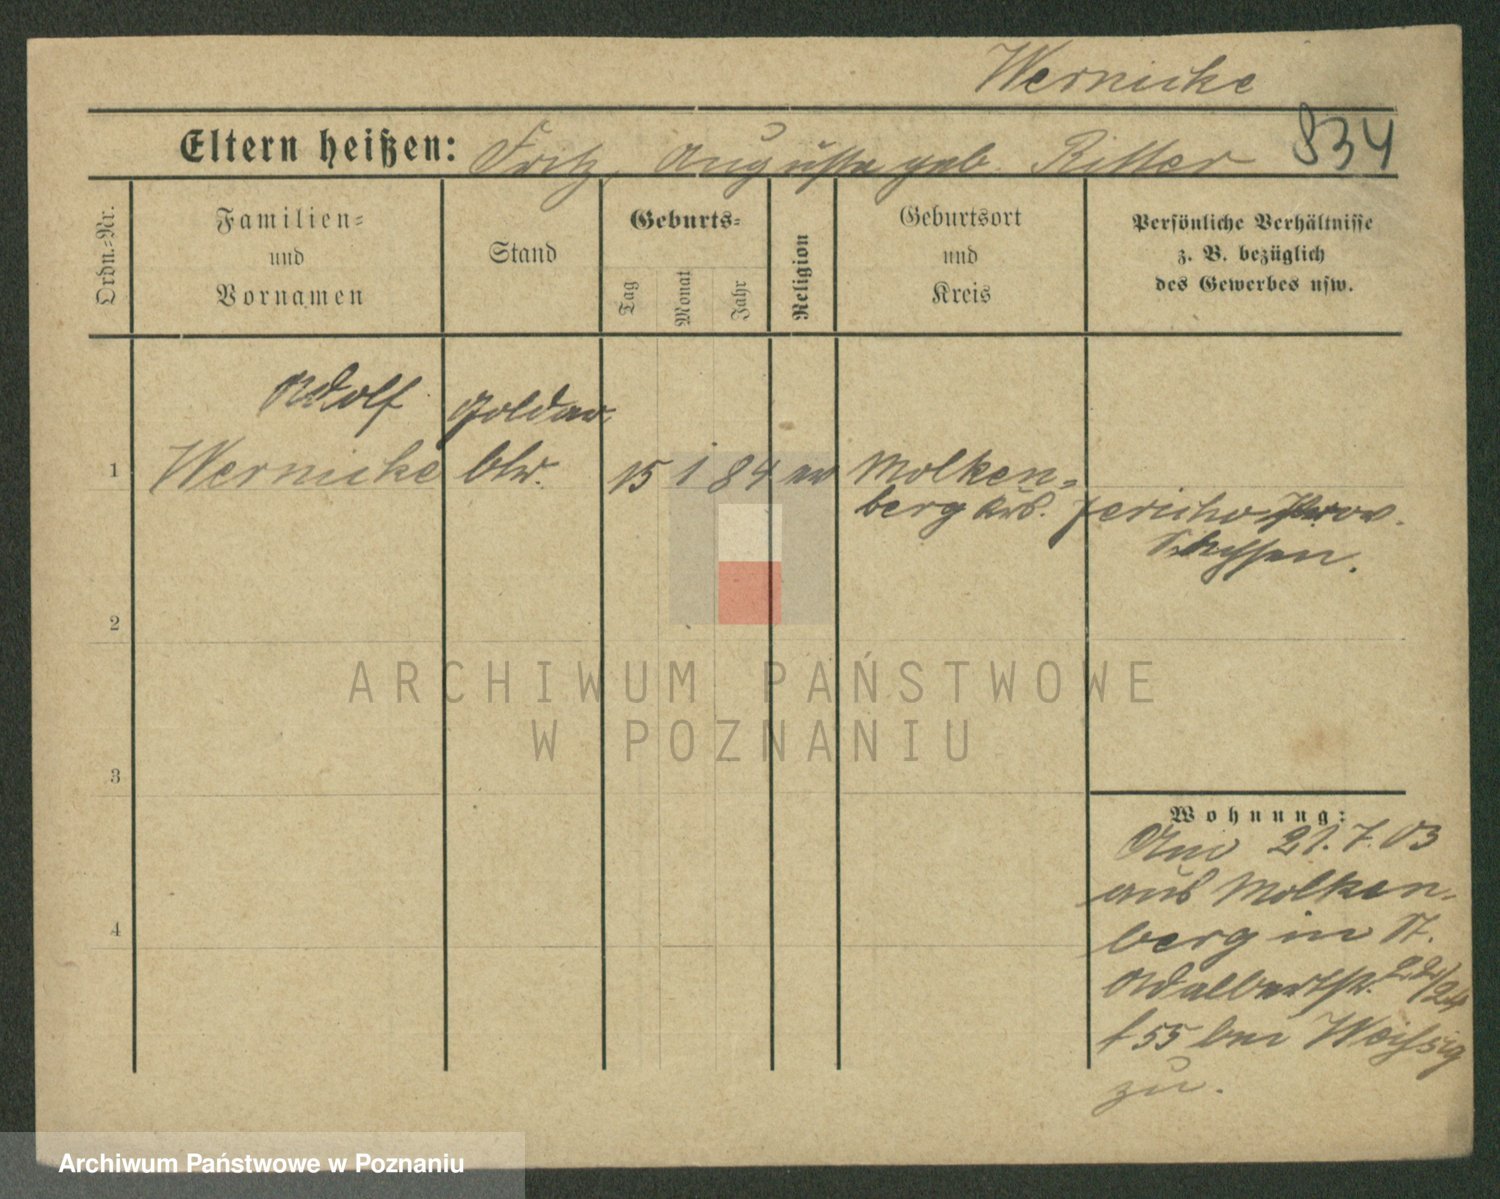 Wernicke
834
Eltern heißen: Fritz, Auguste geb. Ritter
Ordn.-Nr.
Familien-
und
Vornamen
Stand
Geburts-
Tag
Monat
Jahr
Religion
Geburtsort
und
Kreis
Persönliche Verhältnisse
z. B. bezüglich
des Gewerbes usw.
Adolf
1 Wernicke
15 1 84 ev
Molken-
berg Jericho Prov.
Sachsen.
2
3
4
Wohnung:
Am 21.7.03
aus Molken-
berg in St.
Adalbertstr. 22/24
bei Weissig
zu.
ARCHIWUM PAŃSTWOWE
W POZNANIU
Archiwum Państwowe w Poznaniu